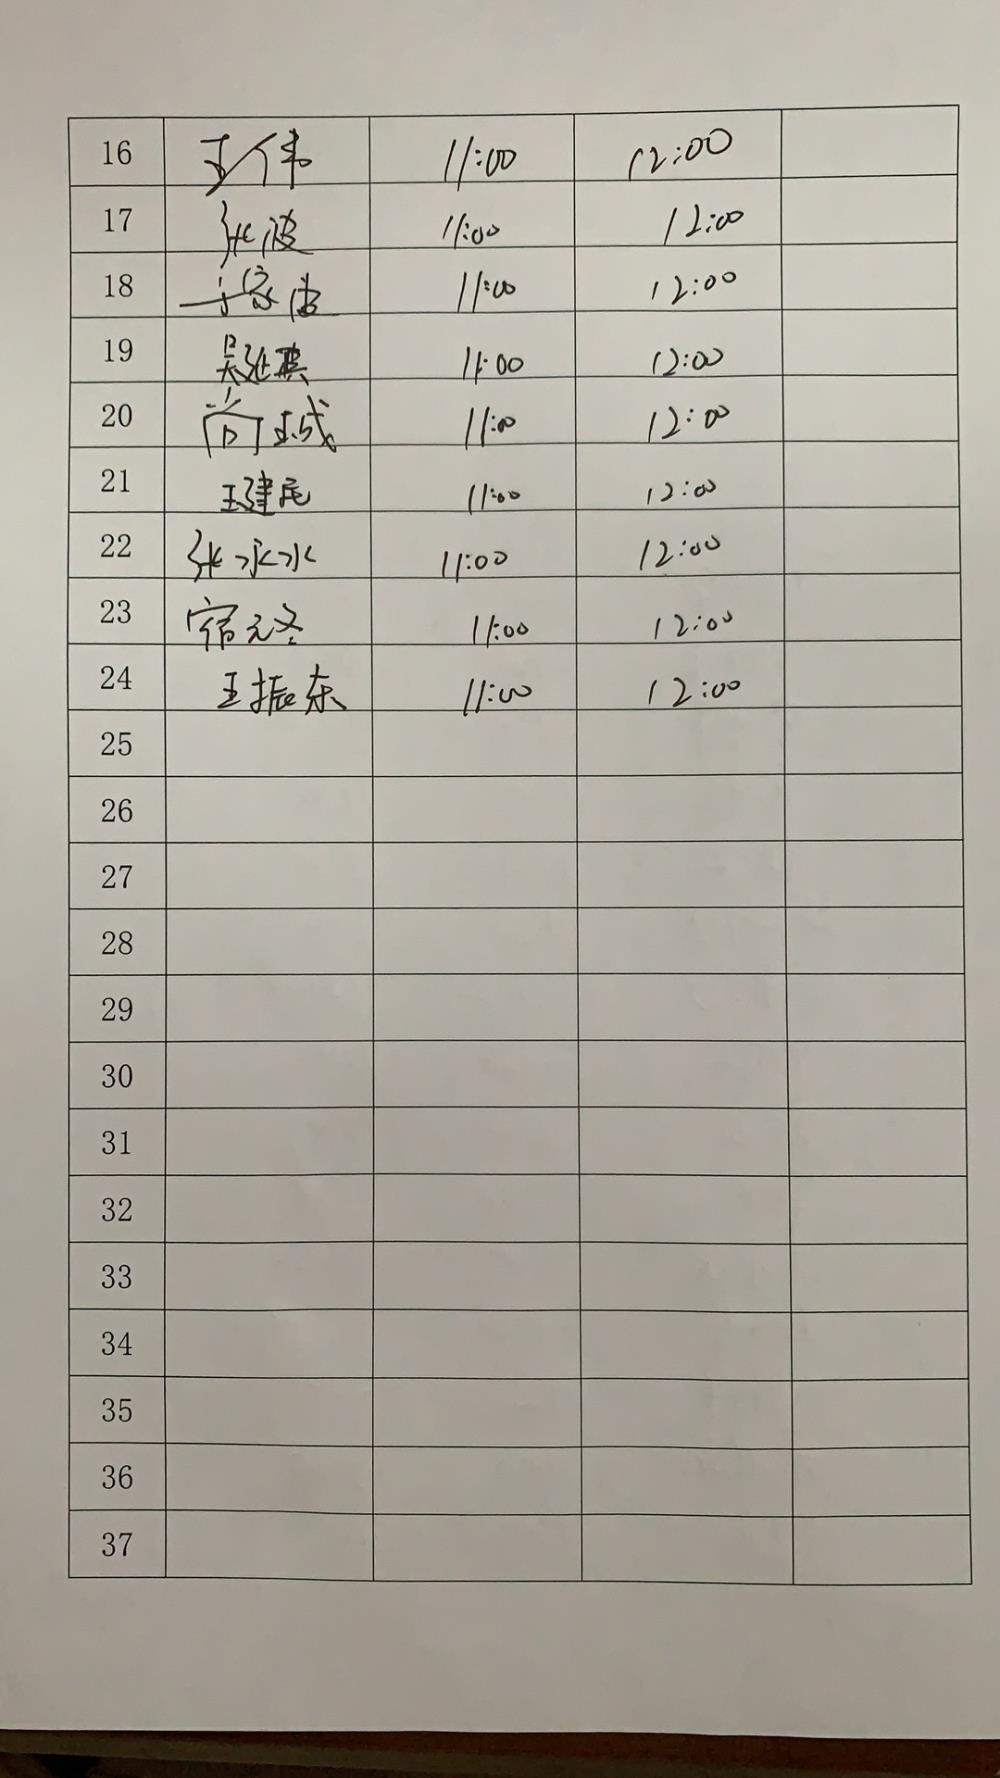 16 王伟 11:00 12:00
17 张波 11:00 12:00
18 11:00 12:00
19 吴延 11:00 12:00
20 尚玉成 11:00 12:00
21 王建尾 11:00 12:00
22 张永水 11:00 12:00
23 宿元冬 11:00 12:00
24 王振东 11:00 12:00
25
26
27
28
29
30
31
32
33
34
35
36
37